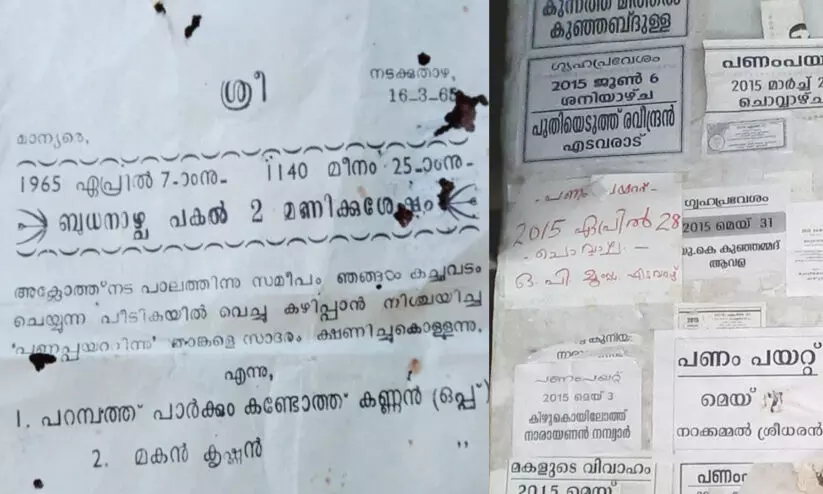 ശ്രീ
നടക്കുതാഴ,
16-3-65
മാന്യരെ,
1965 ഏപ്രിൽ 7-ാംനു- 1140 മീനം 25-ാംനു-
ബുധനാഴ്ച പകൽ 2 മണിക്കുശേഷം
അക്ലോത്ത്നട പാലത്തിനു സമീപം ഞങ്ങൾ കച്ചവടം
ചെയ്യുന്ന പീടികയിൽ വെച്ചു കഴിപ്പാൻ നിശ്ചയിച്ച
താങ്കളെ സാദരം ക്ഷണിച്ചുകൊള്ളുന്നു.
എന്നു,
1. പറമ്പത്ത് പാർക്കും കണ്ടോത്ത് കണ്ണൻ (ഒപ്പ്)
2. മകൻ കൃഷ്ണൻ ,,
കുന്നത്ത് മീത്തൽ
കുഞ്ഞബ്ദുള്ള
ഗൃഹപ്രവേശം
2015 ജൂൺ 6
ശനിയാഴ്ച
പുതിയെടുത്ത് രവീന്ദ്രൻ
എടവരാട്
പണംപയ
2015 മാർച്ച് 2
ചൊവ്വാഴ്ച
2015 ഏപ്രിൽ 28
ചൊവ്വാഴ്ച
ഗൃഹപ്രവേശം
2015 മെയ് 31
യു.കെ കുഞ്ഞമ്മദ്
ആവള
2015
പണപ്പെയറ്റ്
2015 മെയ് 3
കിഴുകൊയിലോത്ത്
നാരായണൻ നമ്പ്യാർ
പണം പയറ്റ്
മെയ്
നറക്കമ്മൽ ശ്രീധരൻ
മകളുടെ വിവാഹം
2015 മെയ്
പണം